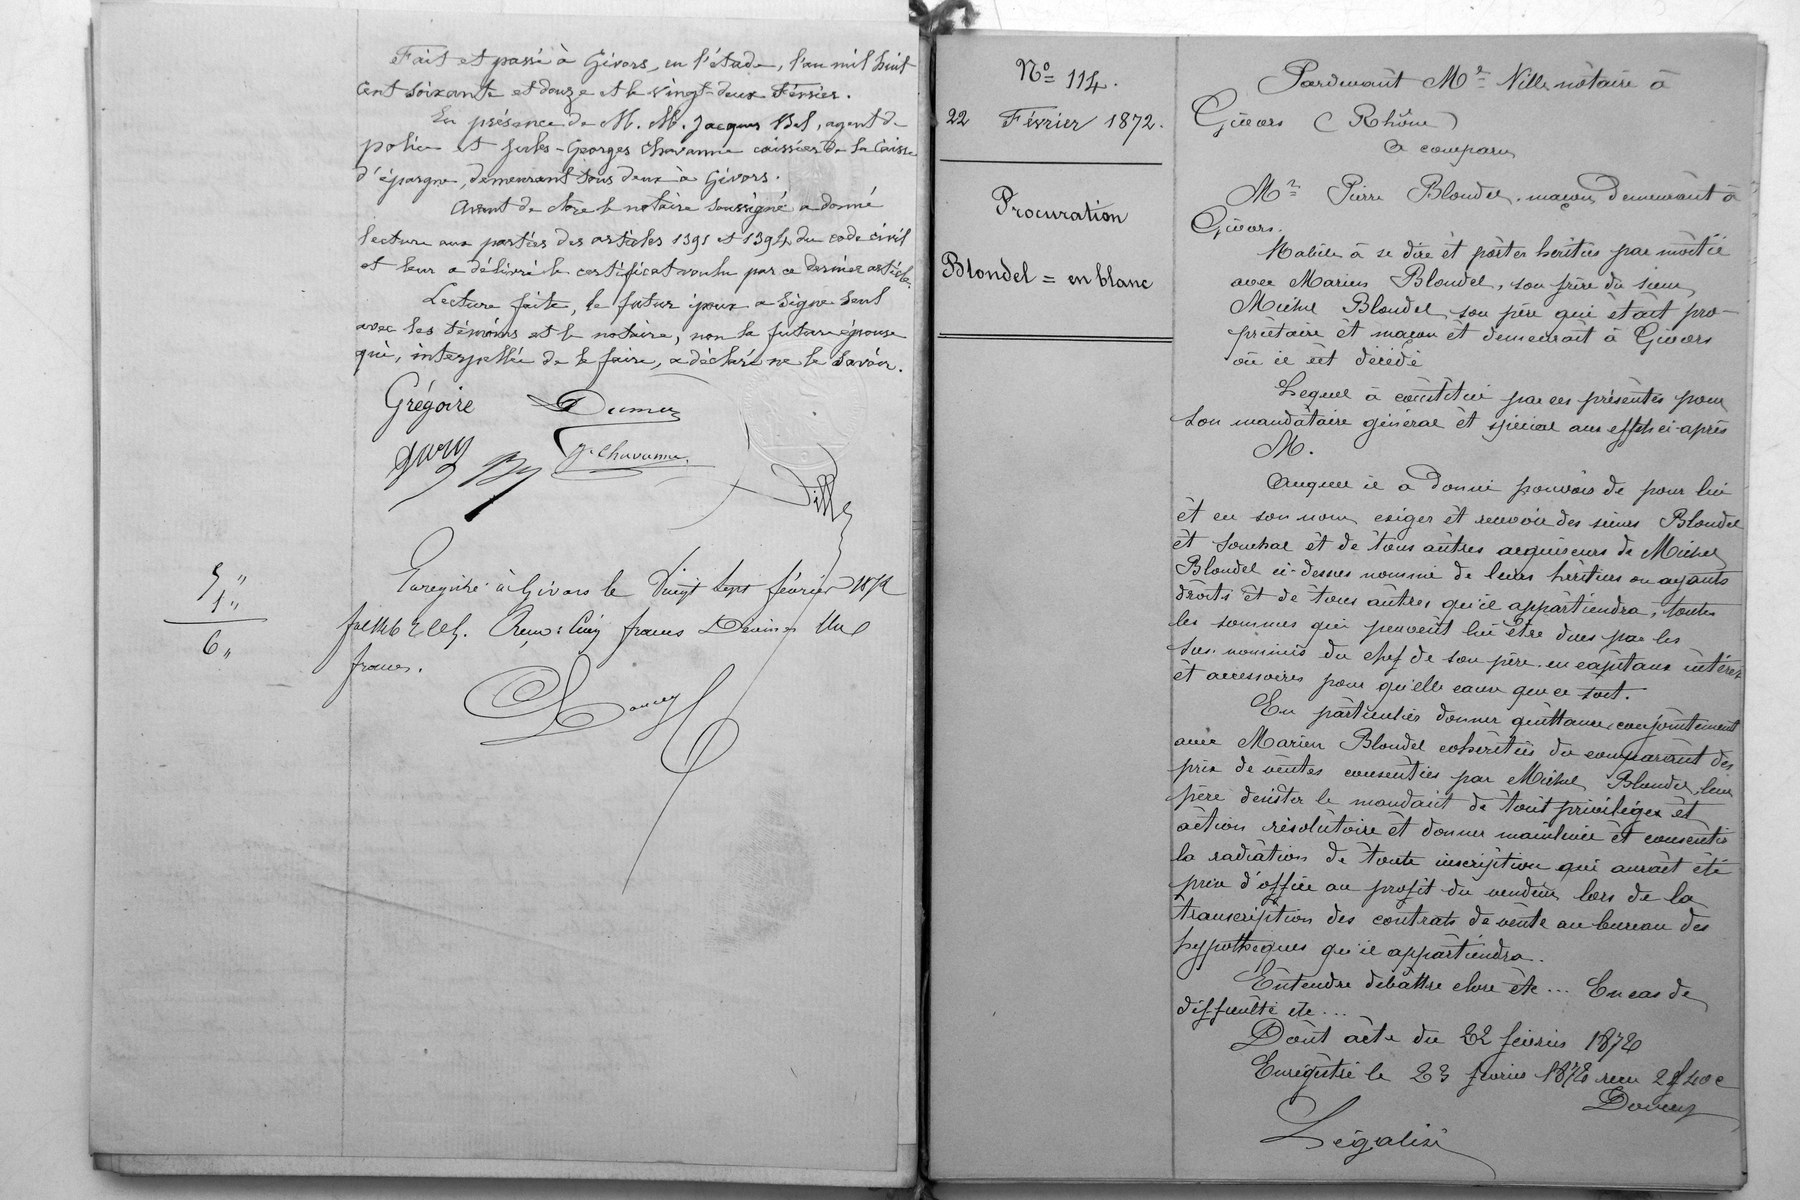 Fait et passé à Givors, en l'étude, l'an mil huit
cent soixante et douze et le vingt-deux Février.
En présence de M. M. Jacques Bel, agent de
police et Jules-Georges Chavanne caissier de la Caisse
d'épargne, demeurant tous deux à Givors.
Avant de clore le notaire soussigné a donné
lecture aux parties des articles 1391 et 1394 du code civil
et leur a délivré le certificat voulu par ce dernier article.
Lecture faite, le futur époux a signé seul
avec les témoins et le notaire, non la future épouse
qui, interpellée de le faire, a déclaré ne le savoir.
Grégoire
J. Chavanne
Ville
Enregistré à Givors le Vingt sept février 1872
Reçu: Cinq francs Décimes Un
francs.
5 "
1 "
6 "
Nº 114.
22 Février 1872.
Procuration
Blondel = en blanc
Pardevant Me Ville notaire à
Givors (Rhône)
a comparu
Mr Pierre Blondel, maçon demeurant à
Givors.
Habile à se dire et porter héritier par moitié
avec Marius Blondel, son frère du sieur
Michel Blondel son père qui était pro-
priétaire et maçon et demeurait à Givors
où il est décédé
Lequel à constitué par ces présentes pour
son mandataire général et spécial aux effets ci-après
M.
Auquel il a donné pouvoir de pour lui
et en son nom, exiger et recevoir des sieurs Blondel
et Souchal et de tous autres acquéreurs de Michel
Blondel ci-dessus nommé de leurs héritiers ou ayants
droits et de tous autres qu'il appartiendra, toutes
les sommes qui peuvent lui être dues par les
sus-nommés du chef de son père en capitaux intérêts
et accessoires pour quelle cause que ce soit.
En particulier donner quittance conjointement
avec Marius Blondel cohéritier du comparant des
prix de ventes consenties par Michel Blondel, leur
père désister le mandant de tout privilèges et
action résolutoire et donner mainlevée et consentir
la radiation de toute inscription qui aurait été
prise d'office au profit du vendeur lors de la
transcription des contrats de vente au bureau des
hypothèques qu'il appartiendra.
Entendre débattre clore etc... En cas de
difficulté etc...
Dont acte du 22 février 1872
Enregistré le 23 février 1872 reçu 2f 40c
Légalisé